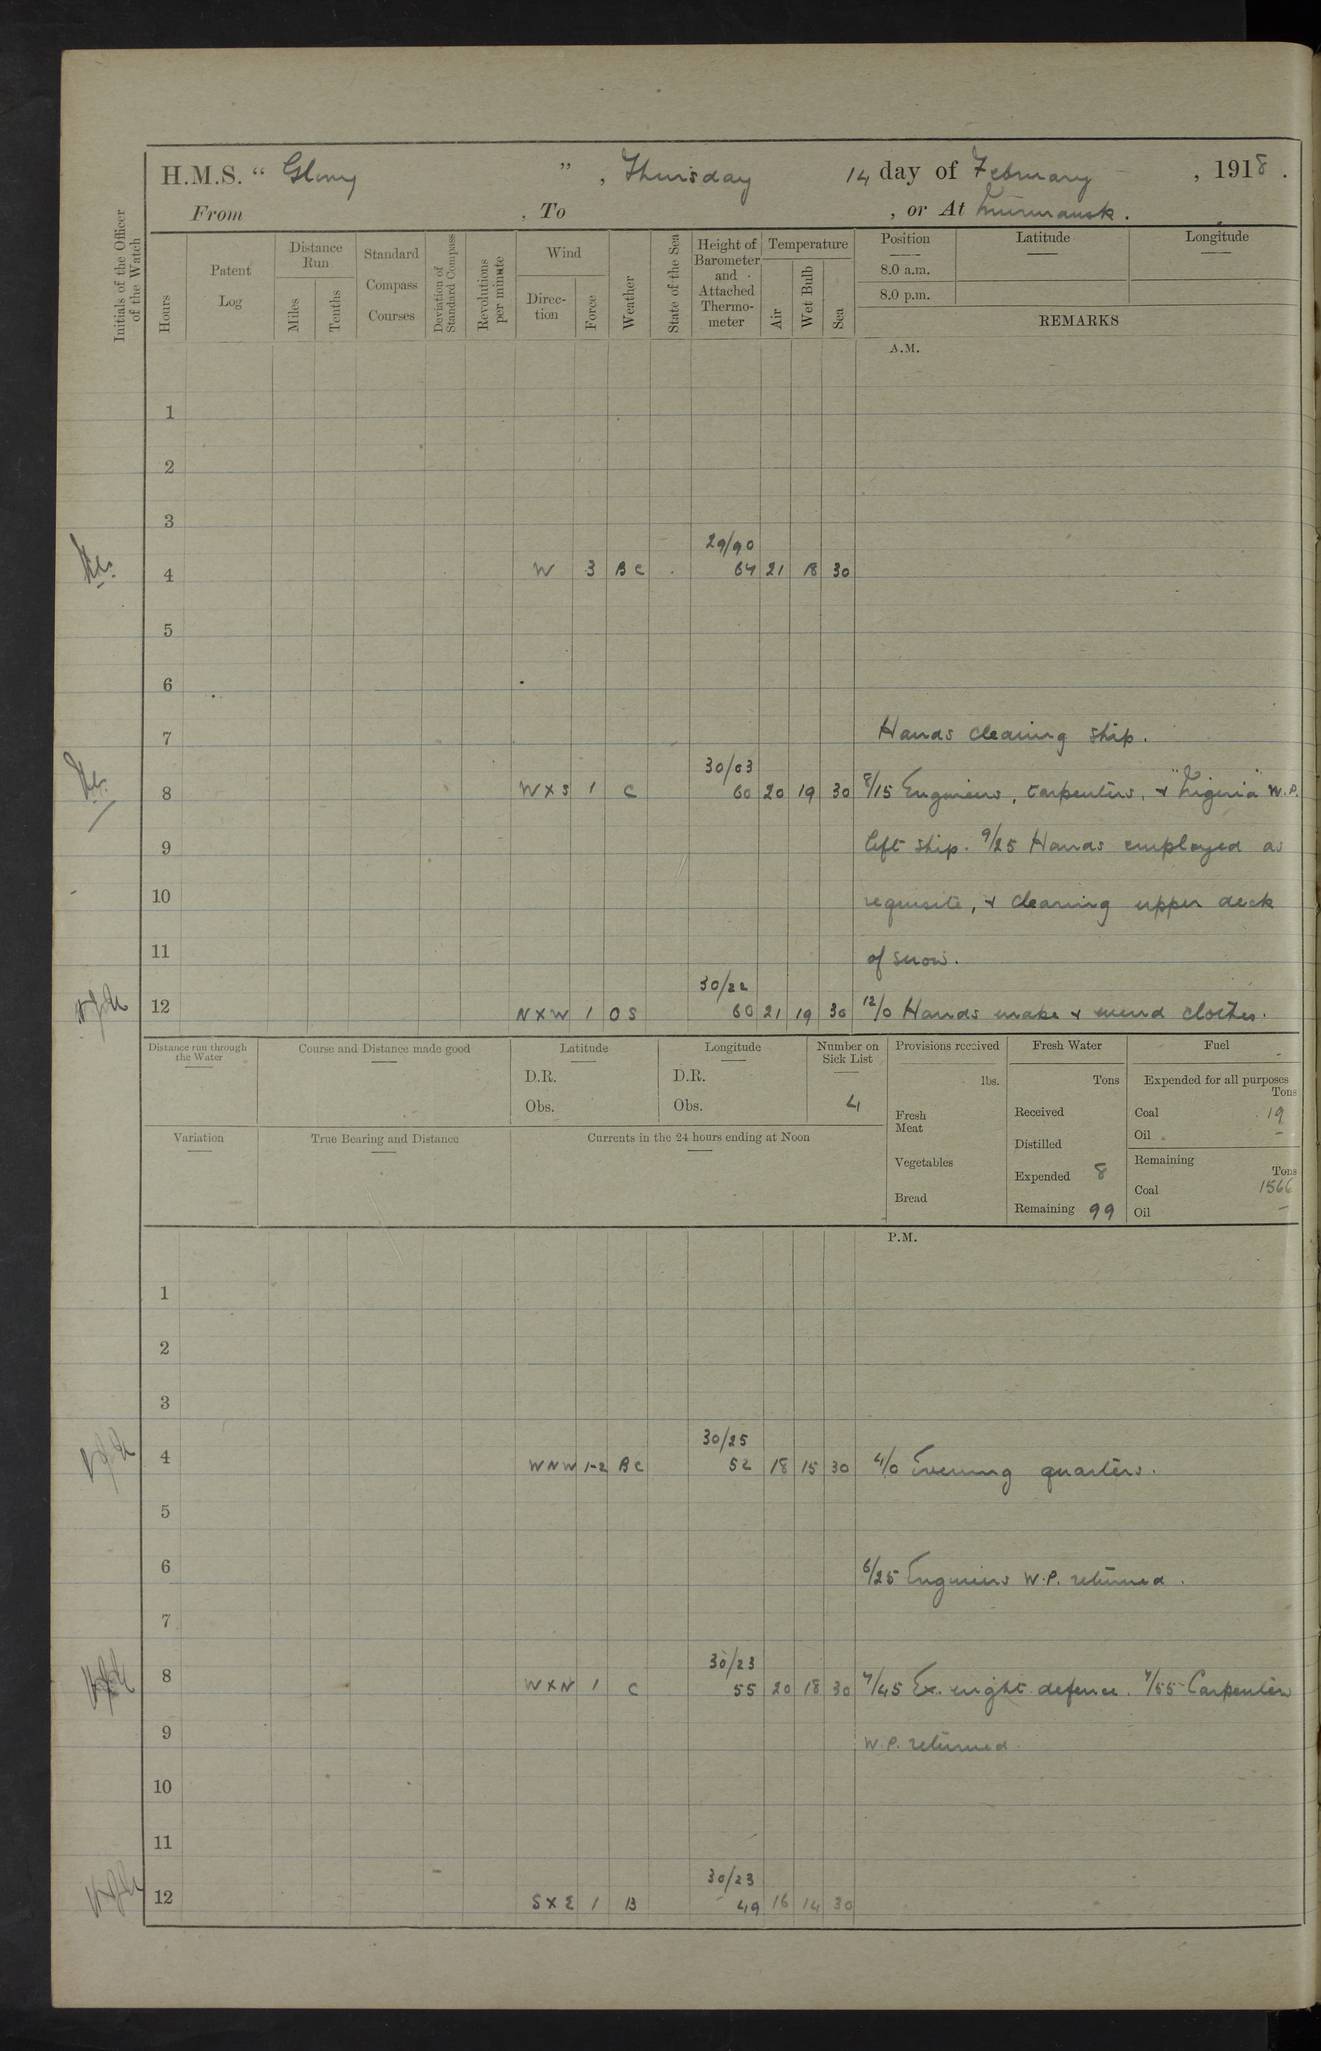 H.M.S. “ Glory ” , Thursday 14 day of February , 1918 .
From , To , or At Murmansk .
Initials of the Officer of the Watch
Hours
Patent Log
Distance Run
Miles
Tenths
Standard Compass Courses
Deviation of Standard Compass
Revolutions per minute
Wind
Direc- tion
Force
Weather
State of the Sea
Height of Barometer and Attached Thermo- meter
Temperature
Air
Wet Bulb
Sea
Position Latitude Longitude
8.0 a.m.
8.0 p.m.
REMARKS
A.M.
1
2
3
29/90
4 W 3 BC 64 21 18 30
5
6
7 Hands cleaning ship.
30/03
8 W X S 1 C 60 20 19 30 8/15 Engineers, Carpenters, & "Nigeria" W.P.
9 left ship. 9/25 Hands employed as
10 requisite, & cleaning upper deck
11 of snow.
30/22
12 N X W 1 OS 60 21 19 30 12/0 Hands make & mend clothes.
Distance run through the Water
Course and Distance made good
Latitude
D.R.
Obs.
Longitude
D.R.
Obs.
Number on Sick List
4
Provisions received
lbs.
Fresh Meat
Vegetables
Bread
Fresh Water
Tons
Received
Distilled
Expended 8
Remaining 99
Fuel
Expended for all purposes
Tons
Coal 19
Oil -
Remaining
Tons
Coal 1566
Oil -
Variation
True Bearing and Distance
Currents in the 24 hours ending at Noon
P.M.
1
2
3
30/25
4 WNW 1-2 BC 52 18 15 30 4/0 Evening quarters.
5
6 6/25 Engineers W.P. returned.
7
30/23
8 W X N 1 C 55 20 18 30 7/45 Ex. night defence. 7/55 Carpenters
9 W.P. returned.
10
11
30/23
12 S X E 1 B 49 16 14 30